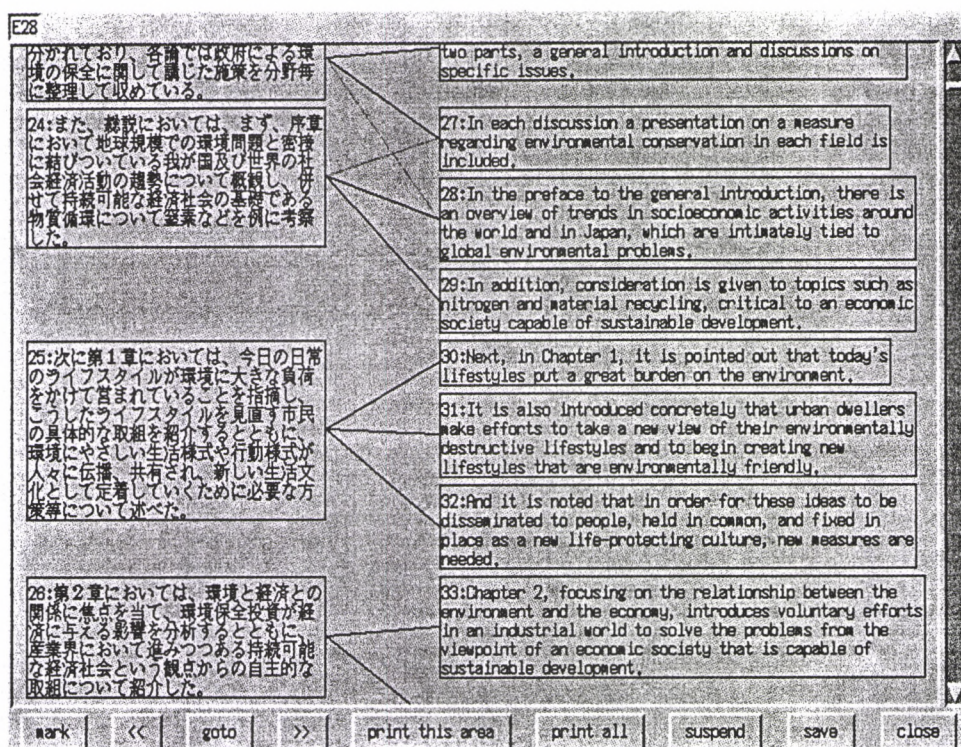 E28
分かれており、各論では政府による環
境の保全に関して講じた施策を分野毎
に整理して収めている。
24:また、総説においては、まず、序章
において地球規模での環境問題と密接
に結びついている我が国及び世界の社
会経済活動の趨勢について概観し、併
せて持続可能な経済社会の基礎である
物質循環について窒素などを例に考察
した。
25:次に第1章においては、今日の日常
のライフスタイルが環境に大きな負荷
をかけて営まれていることを指摘し、
こうしたライフスタイルを見直す市民
の具体的な取組を紹介するとともに、
環境にやさしい生活様式や行動様式が
人々に伝播、共有され、新しい生活文
化として定着していくために必要な方
策等について述べた。
26:第2章においては、環境と経済との
関係に焦点を当て、環境保全投資が経
済に与える影響を分析するとともに、
産業界において進みつつある持続可能
な経済社会という観点からの自主的な
取組について紹介した。
two parts, a general introduction and discussions on
specific issues.
27:In each discussion a presentation on a measure
regarding environmental conservation in each field is
included.
28:In the preface to the general introduction, there is
an overview of trends in socioeconomic activities around
the world and in Japan, which are intimately tied to
global environmental problems.
29:In addition, consideration is given to topics such as
nitrogen and material recycling, critical to an economic
society capable of sustainable development.
30:Next, in Chapter 1, it is pointed out that today's
lifestyles put a great burden on the environment.
31:It is also introduced concretely that urban dwellers
make efforts to take a new view of their environmentally
destructive lifestyles and to begin creating new
lifestyles that are environmentally friendly.
32:And it is noted that in order for these ideas to be
disseminated to people, held in common, and fixed in
place as a new life-protecting culture, new measures are
needed.
33:Chapter 2, focusing on the relationship between the
environment and the economy, introduces voluntary efforts
in an industrial world to solve the problems from the
viewpoint of an economic society that is capable of
sustainable development.
mark << goto >> print this area print all suspend save close